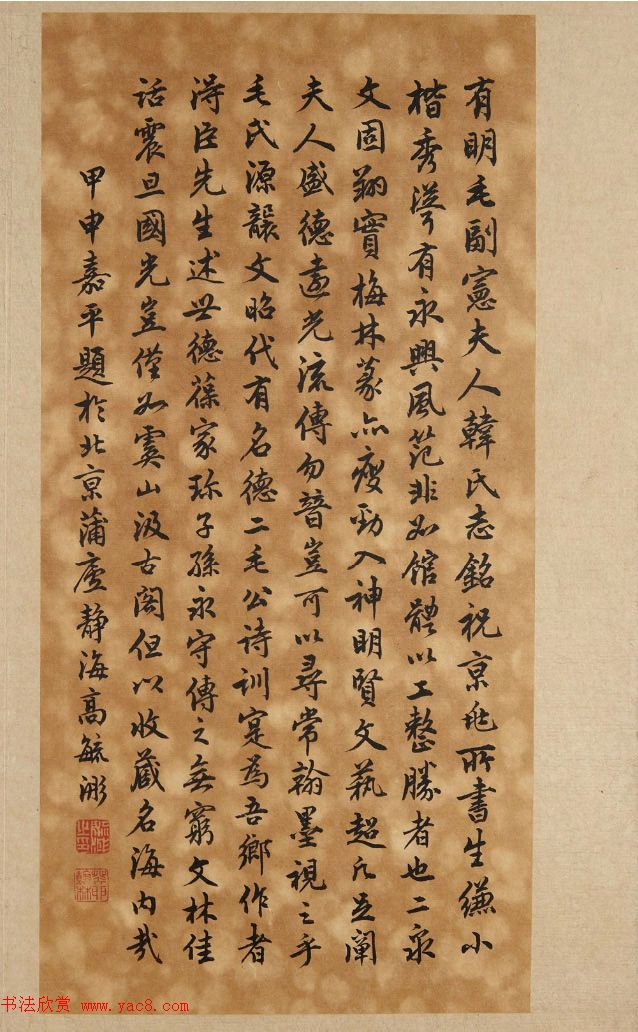 有明毛副憲夫人韓氏志銘祝京兆所書生縑小
楷秀澤有永興風範非如館體以工整勝者也二泉
文固翔實梅林篆亦瘦勁入神明賢文藝超凡足闡
夫人盛德遠光流傳勿替豈可以尋常翰墨視之乎
毛氏源襲文昭代有名德二毛公詩訓寔為吾鄉作者
淂臣先生述世德葆家珍子孫永守傳之無窮文林佳
話震旦國光豈僅如虞山汲古閣但以收藏名海內哉
甲申嘉平題於北京蒲廬静海高毓浵
书法欣赏 www.yac8.com